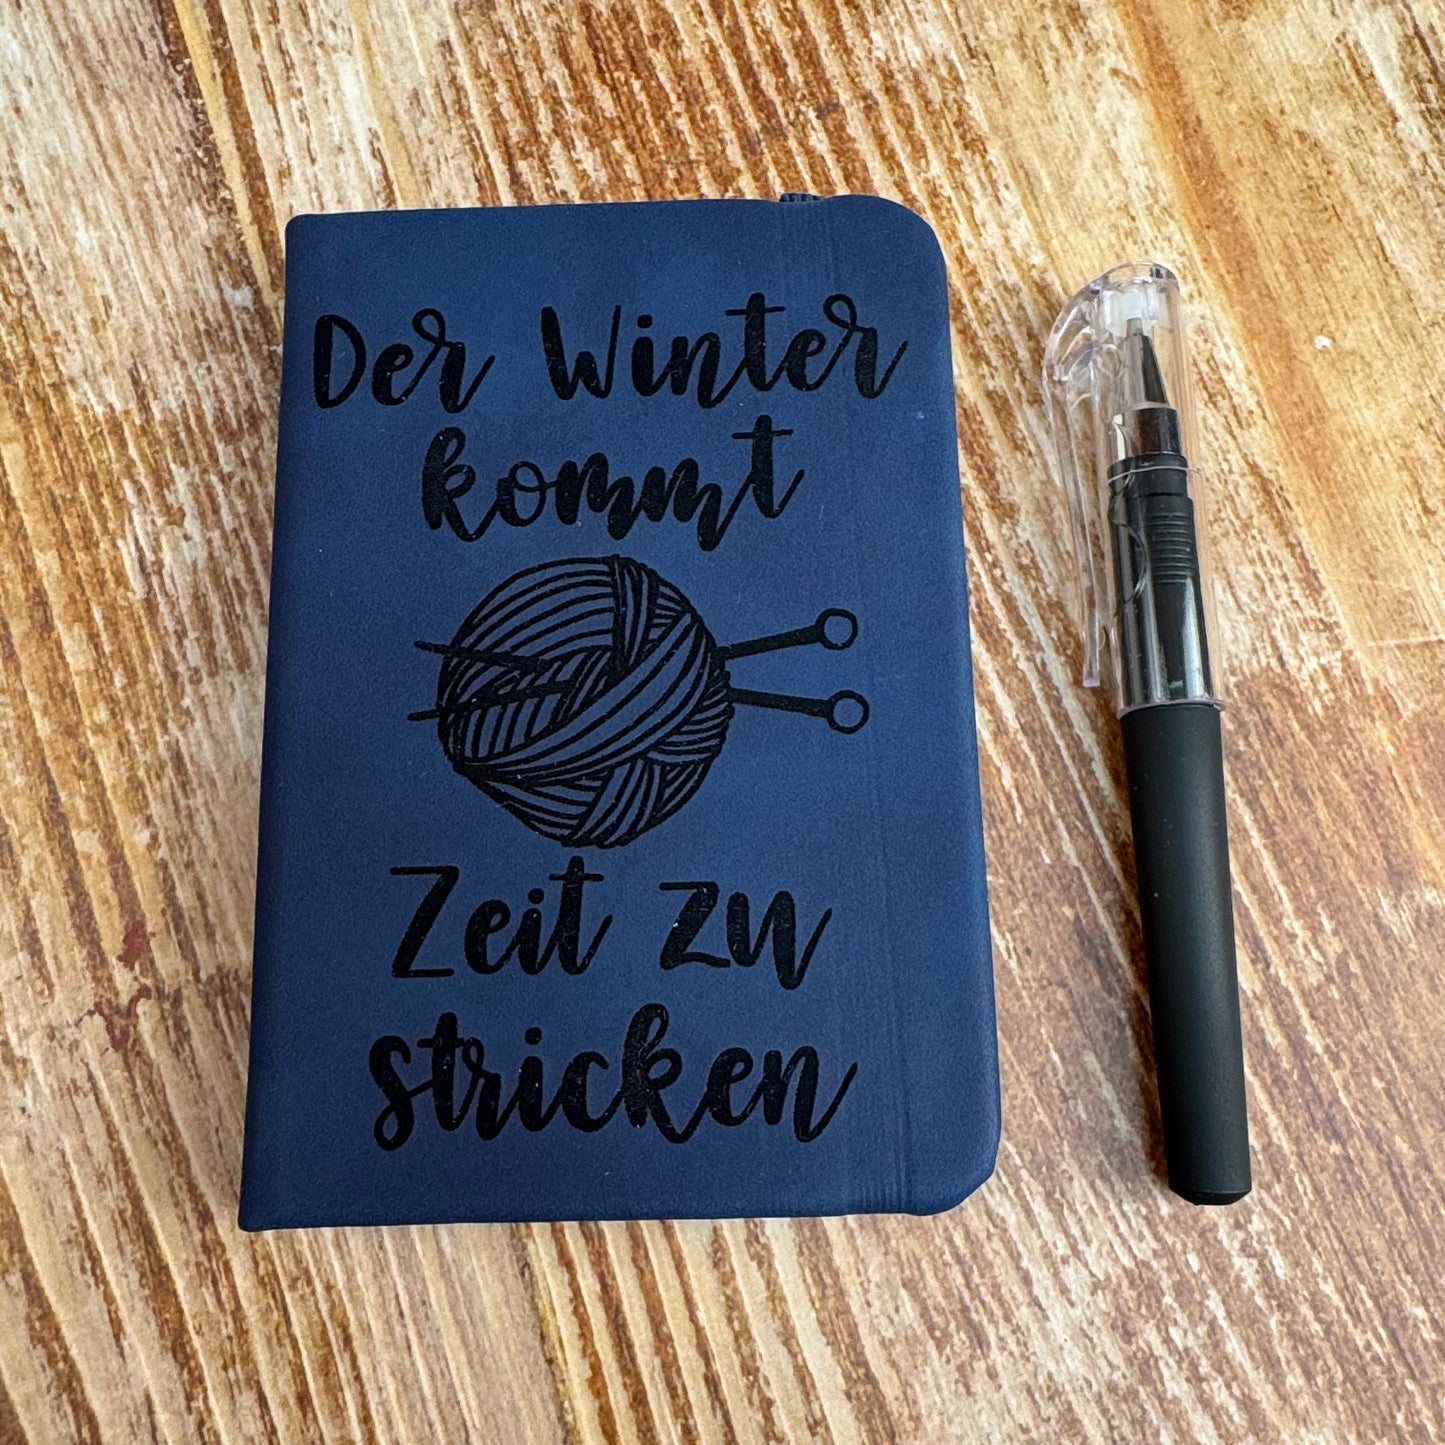 Der Winter
kommt
Zeit zu
stricken